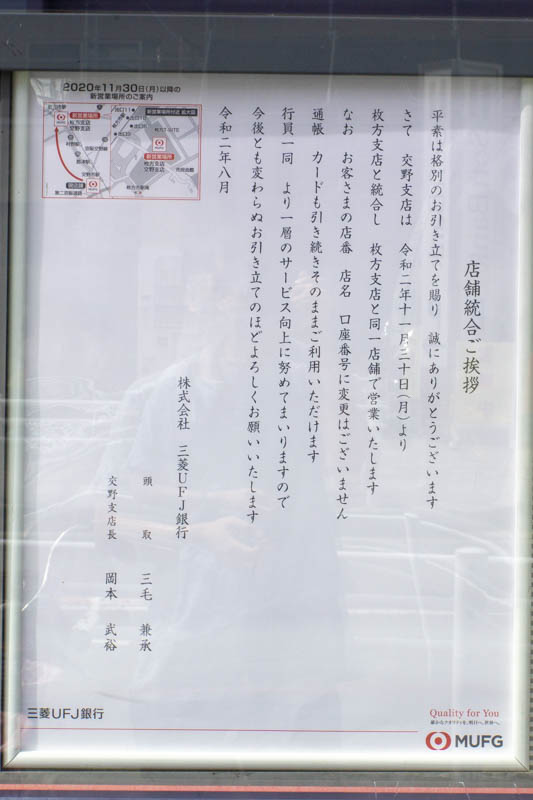 2020年11月30日(月)以降の
新営業場所のご案内
新営業場所
枚方支店
交野支店
新営業場所付近 拡大図
新営業場所
枚方支店
交野支店
店舗統合ご挨拶
平素は格別のお引き立てを賜り 誠にありがとうございます
さて 交野支店は 令和二年十一月三十日(月)より
枚方支店と統合し 枚方支店と同一店舗で営業いたします
なお お客さまの店番 店名 口座番号に変更はございません
通帳 カードも引き続きそのままご利用いただけます
行員一同 より一層のサービス向上に努めてまいりますので
今後とも変わらぬお引き立てのほどよろしくお願いいたします
令和二年八月
株式会社 三菱UFJ銀行
頭取 三毛 兼承
交野支店長 岡本 武裕
三菱UFJ銀行
Quality for You
確かなクオリティを、明日へ。世界へ。
MUFG